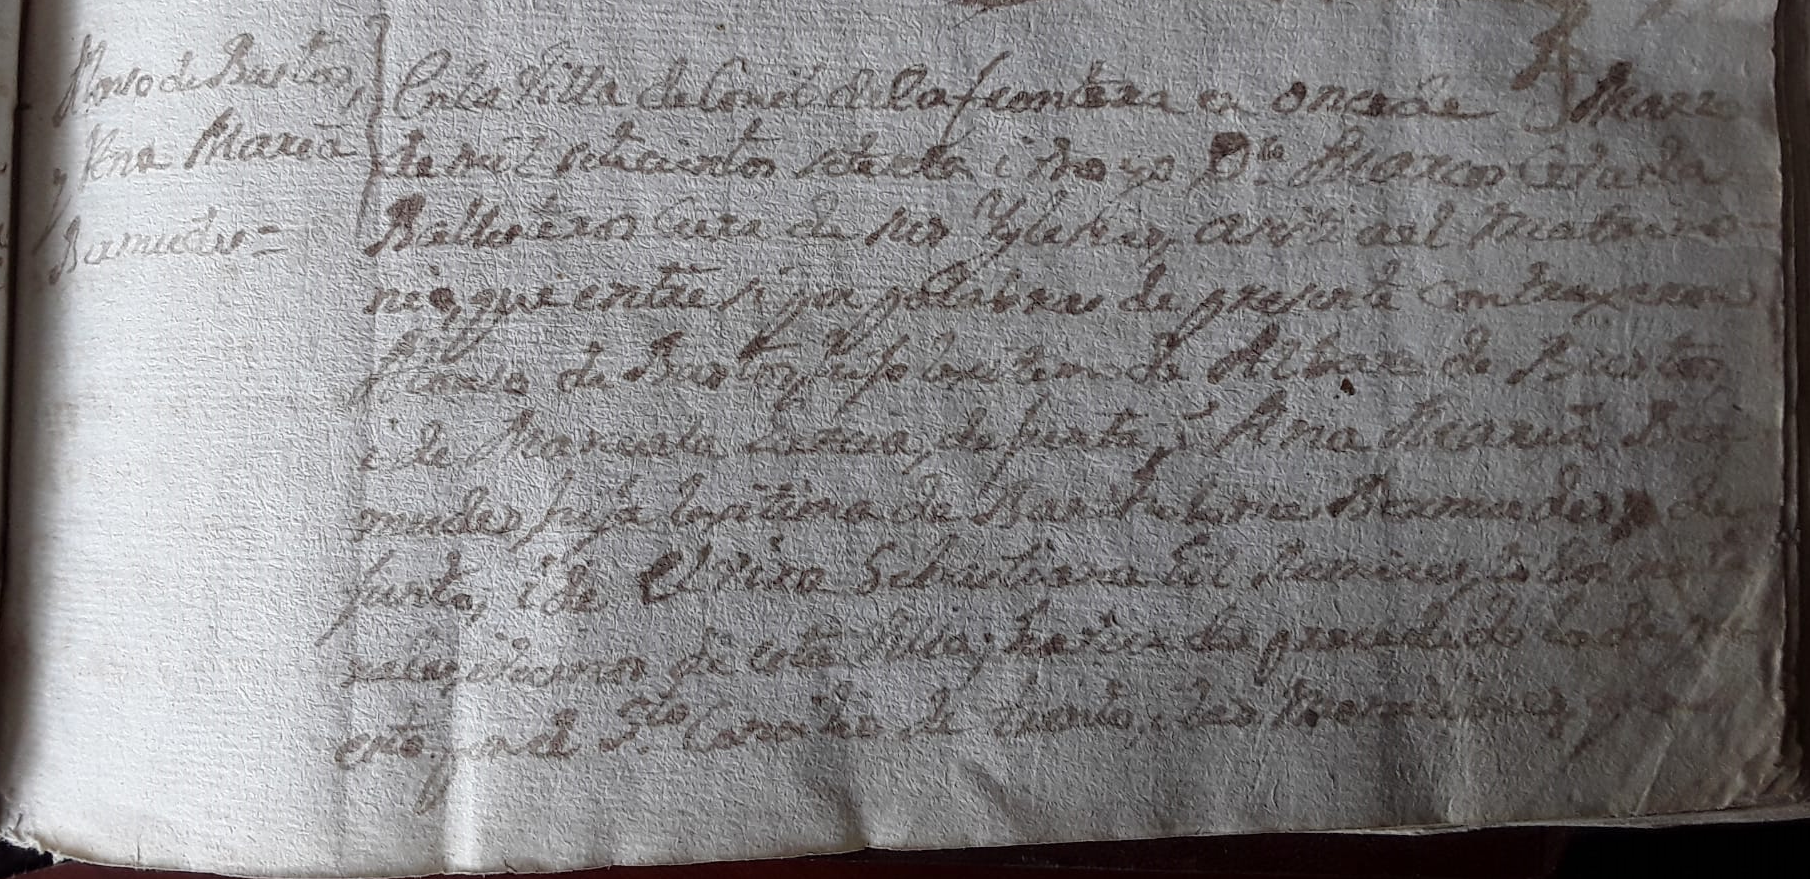 Alonso de Bustos,
y Ana Maria
Bermudes =
En la Villa de Conil de la frontera en onse de Marzo
de mil setecientos setenta i tres yo Dn. Marcos
Ballesteros Cura de sus Yglesias, asisti al Matrimo
nio, que entre si por palabras de presente contraxeron
Alonso de Bustos, hijo lexitimo de Alonso de Bustos,
i de Manuela, defunta, i Ana Maria Ber
mudes hija lexitima de Bartholome Bermudes, de
funto, i de Elvira Sebastiana Gil Ramires, todos na
rales, i vecinos de esta Villa; haviendo precedido lo dispu
esto por el Sto. Concilio de Trento, i las Moniciones